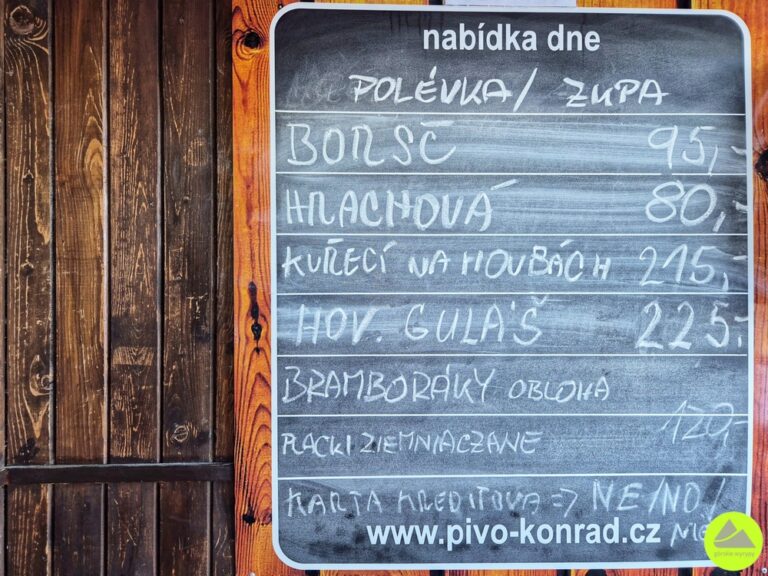 nabídka dne
POLÉVKA / ZUPA
BORSČ 95,-
HRACHOVÁ 80,-
KUŘECÍ NA HOUBÁCH 215,-
HOV. GULÁŠ 225,-
BRAMBORÁKY OBLOHA
120,-
PLACKI ZIEMNIACZANE
KARTA KREDITOVA => NE/NO/
www.pivo-konrad.cz NIE
górskie wyrypy